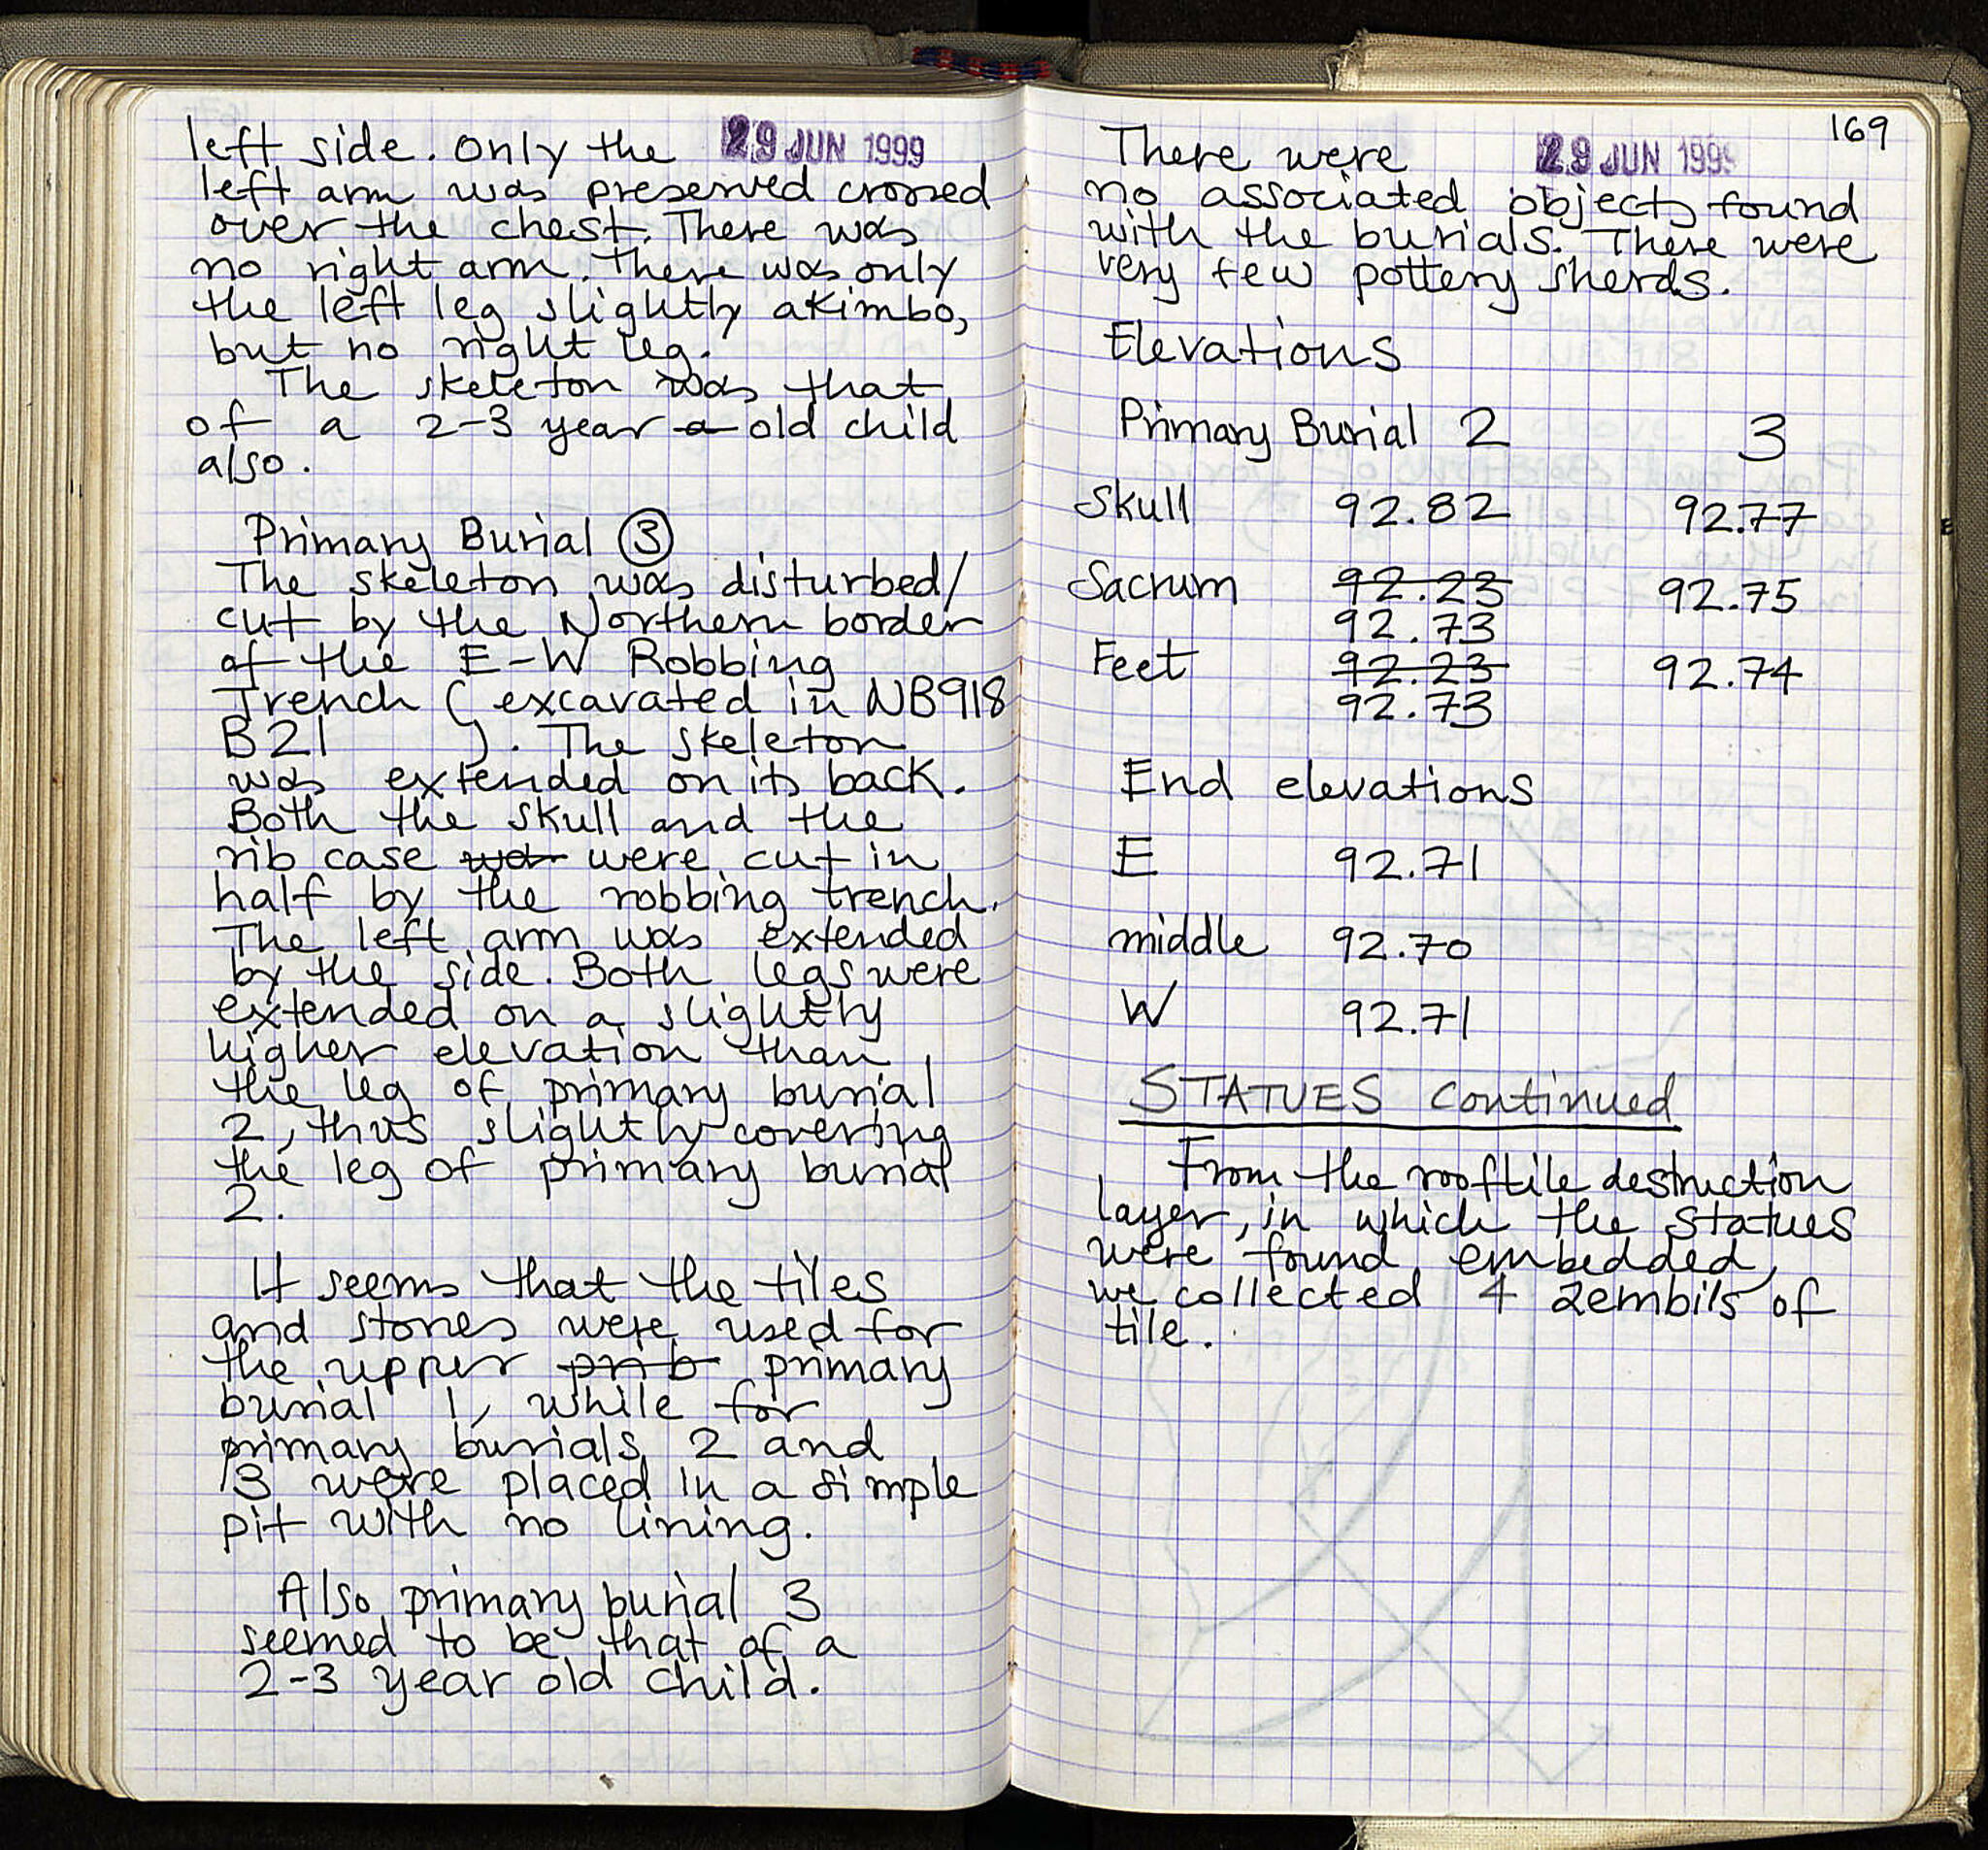 left side. Only the 29 JUN 1999
left arm was preserved crossed
over the chest. There was
no right arm. There was only
the left leg slightly akimbo,
but no right leg.
The skeleton was that
of a 2-3 year a old child
also.
Primary Burial ③
The skeleton was disturbed/
cut by the Northern border
of the E-W Robbing
Trench ( excavated in NB918
B21 ). The skeleton
was extended on its back.
Both the skull and the
rib case were cut in
half by the robbing trench.
The left arm was extended
by the side. Both legs were
extended on a slightly
higher elevation than
the leg of primary burial
2, thus slightly covering
the leg of primary burial
2.
It seems that the tiles
and stones were used for
the upper pri b primary
burial 1, while for
primary burials 2 and
3 were placed in a simple
pit with no lining.
Also primary burial 3
seemed to be that of a
2-3 year old child.
169
There were 29 JUN 1999
no associated objects found
with the burials. There were
very few pottery sherds.
Elevations
Primary Burial 2 3
Skull 92.82 92.77
Sacrum 92.23 92.75
92.73
Feet 92.23 = 92.74
92.73
End elevations
E 92.71
middle 92.70
W 92.71
STATUES continued
From the rooftile destruction
layer, in which the statues
were found embedded,
we collected 4 zembils of
tile.